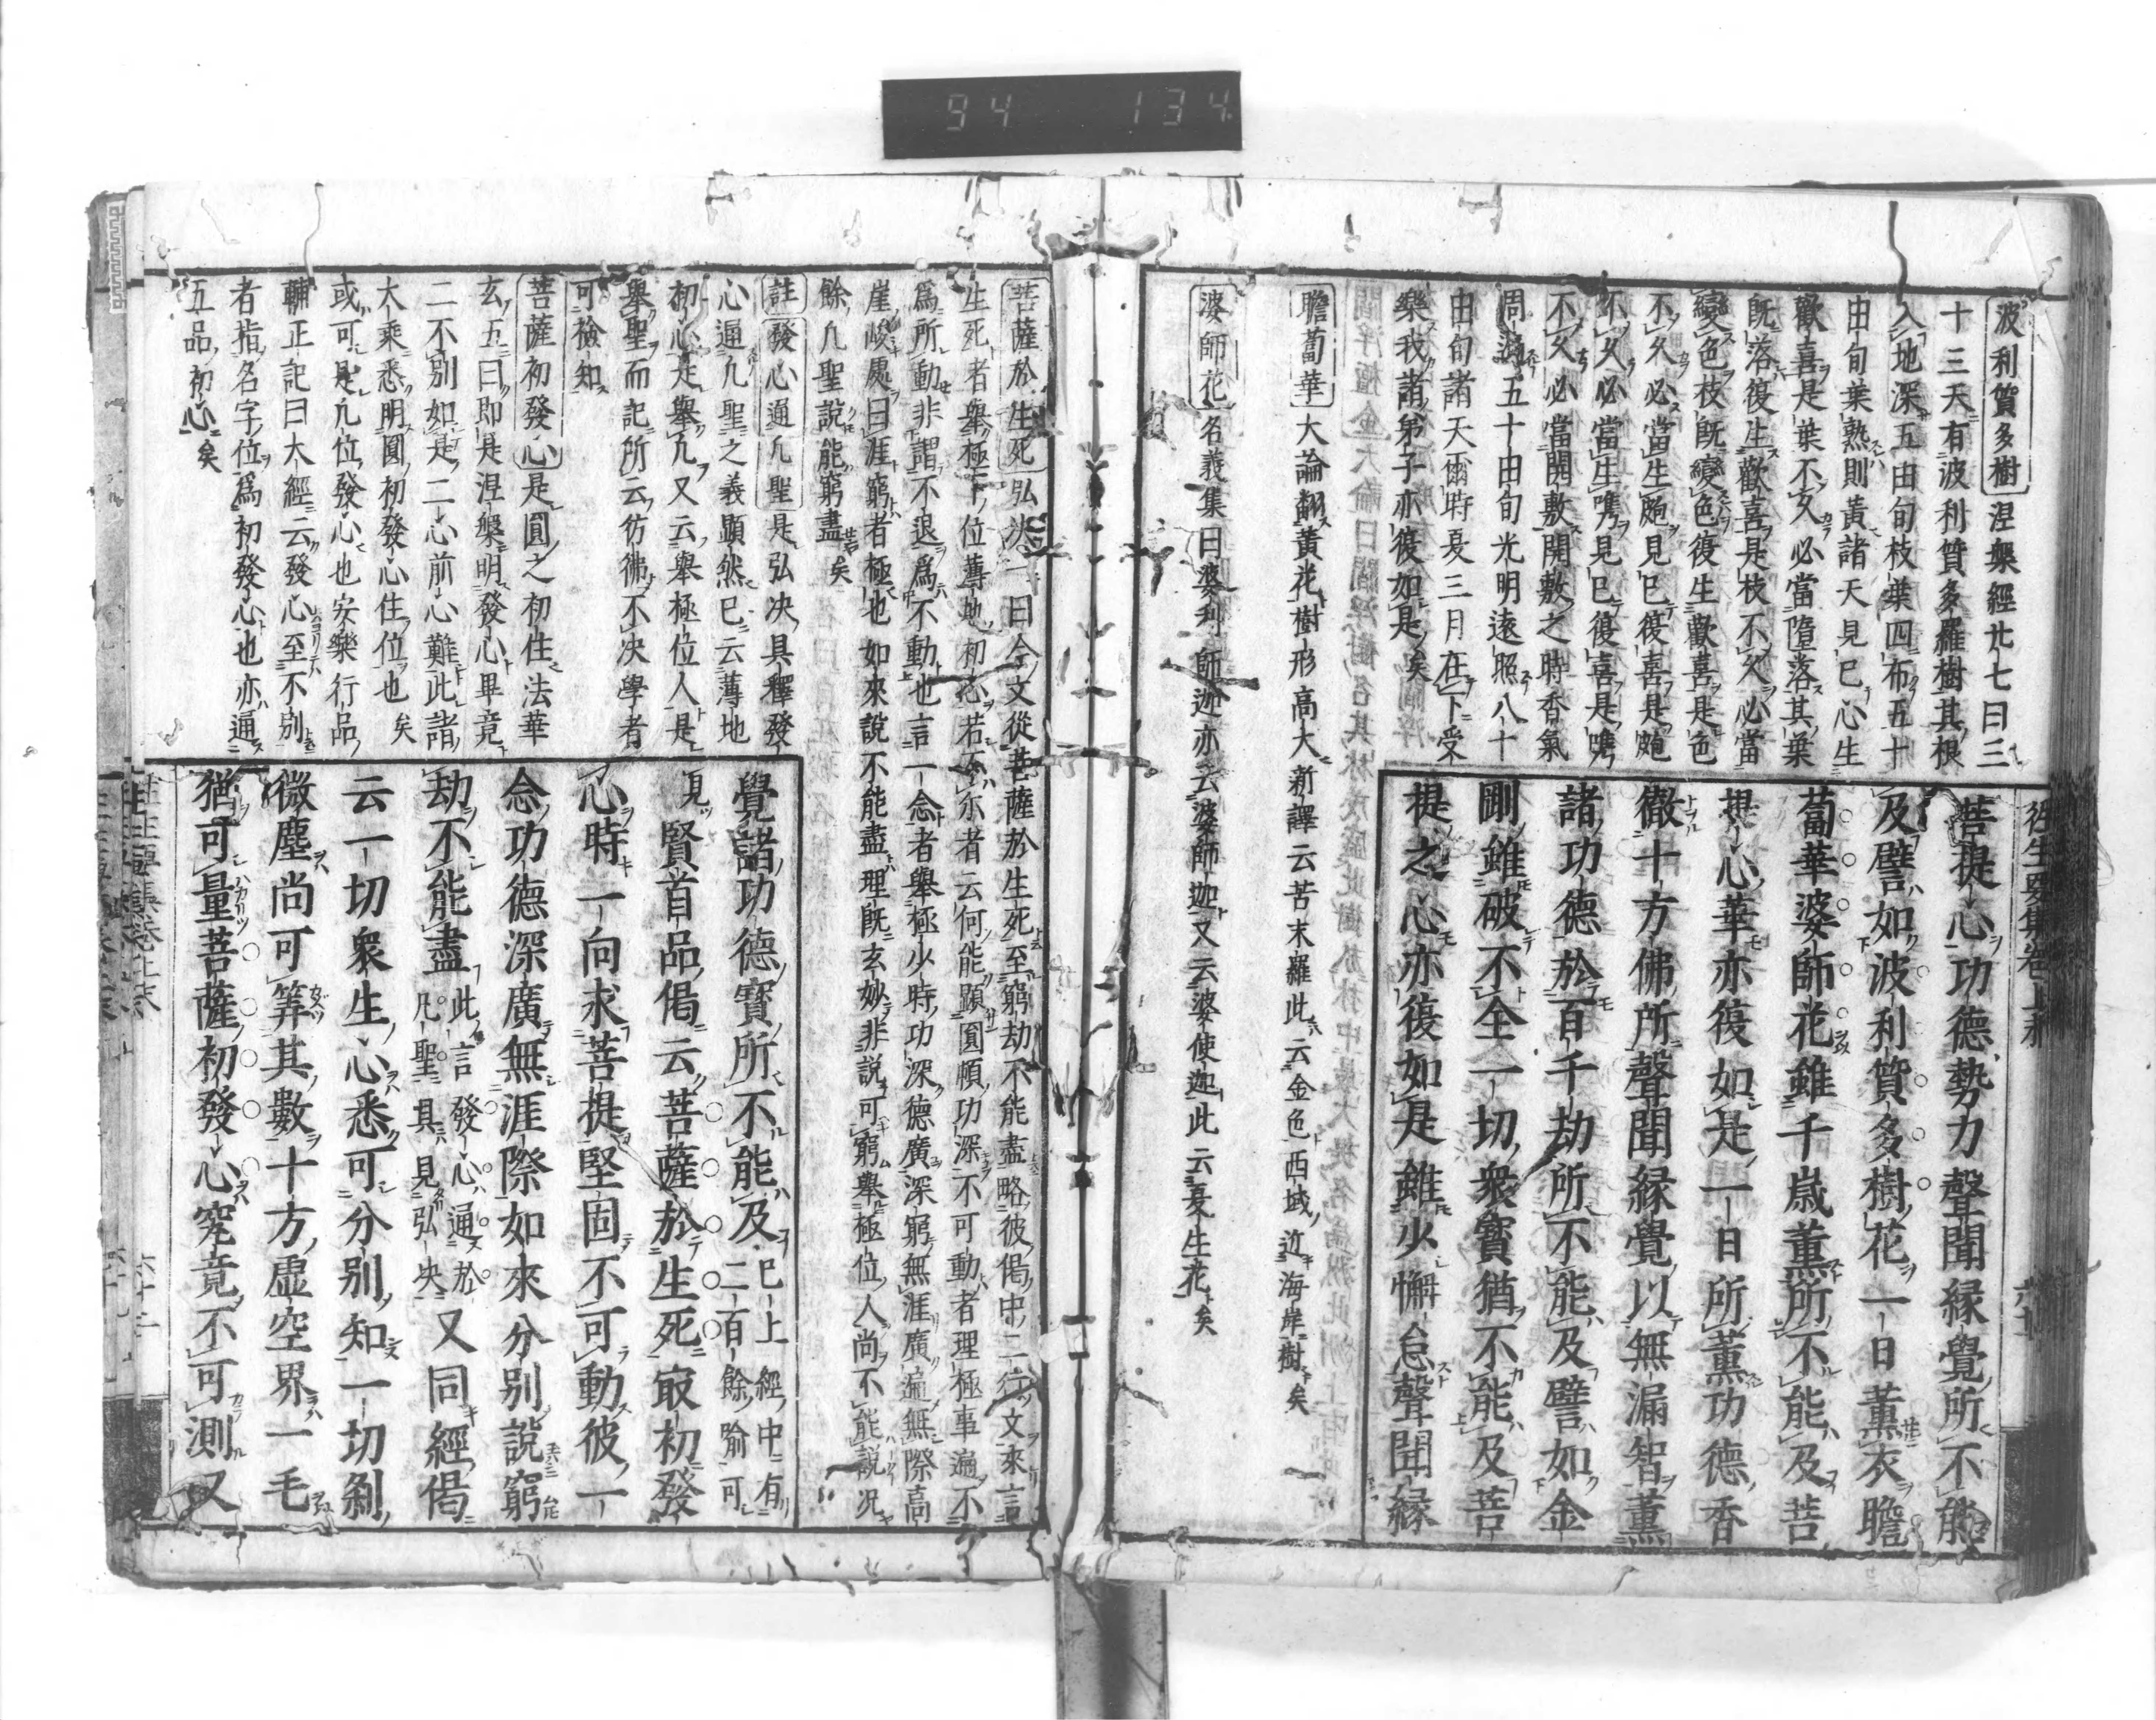 94 134
波利質多樹 涅槃經廿七曰三
十三天有波利質多羅樹其根
入地深五由旬枝葉四布五十
由旬葉熟則黃諸天見已心生
歡喜是葉不久必當墮落其葉
既落復生歡喜是枝不久必當
變色枝既變色復生歡喜是色
不久必當生皰見已復喜是皰
不久必當生嘴見已復喜是嘴
不久必當開敷開敷之時香氣
周遍五十由旬光明遠照八十
由旬諸天爾時夏三月在下受
樂我諸弟子亦復如是矣
瞻蔔華 大論翻黃花樹形高大新譯云苦末羅此云金色西域近海岸樹矣
婆師花 名義集曰婆利師迦亦云婆師迦又云婆使迦此云夏生花矣
往生要集卷上末
菩提心功德勢力聲聞緣覺所不能
及譬如波利質多樹花一日薰衣瞻
蔔華婆師花雖千歲薰所不能及菩
提心華亦復如是一日所薰功德香
徹十方佛所聲聞緣覺以無漏智薰
諸功德於百千劫所不能及譬如金
剛雖破不全一切衆寶猶不能及菩
提之心亦復如是雖少懈怠聲聞緣
菩薩於生死 弘決一曰今文從菩薩於生死至窮劫不能盡略彼偈中二行文來言
生死者舉極下位薄地初心若不尒者云何能顯圓頓功深不可動者理極事遍不
爲所動非謂不退爲不動也言一念者舉極少時功深德廣深窮無涯廣遍無際高
崖峻處曰涯窮者極也如來說不能盡理既玄妙非說可窮舉極位人尚不能說況
餘凡聖說能窮盡矣
註 發心通凡聖 是弘決具釋發
心遍凡聖之義顯然已云薄地
初心是舉凡又云舉極位人是
舉聖而記所云彷彿不決學者
可撿知
菩薩初發心 是圓之初住法華
玄五曰即是涅槃明發心畢竟
二不別如是二心前心難此諸
大乘悉明圓初發心住位也矣
或可是凡位發心也安樂行品
輔正記曰大經云發心至不別
者指名字位爲初發心也亦通
五品初心矣
覺諸功德寶所不能及 已上經中有二百餘喻可見
賢首品偈云菩薩於生死最初發
心時一向求菩提堅固不可動彼一
念功德深廣無涯際如來分別說窮
劫不能盡 此言發心通於凡聖具見弘決 又同經偈
云一切衆生心悉可分別知一切刹
微塵尚可筭其數十方虛空界一毛
猶可量菩薩初發心究竟不可測又